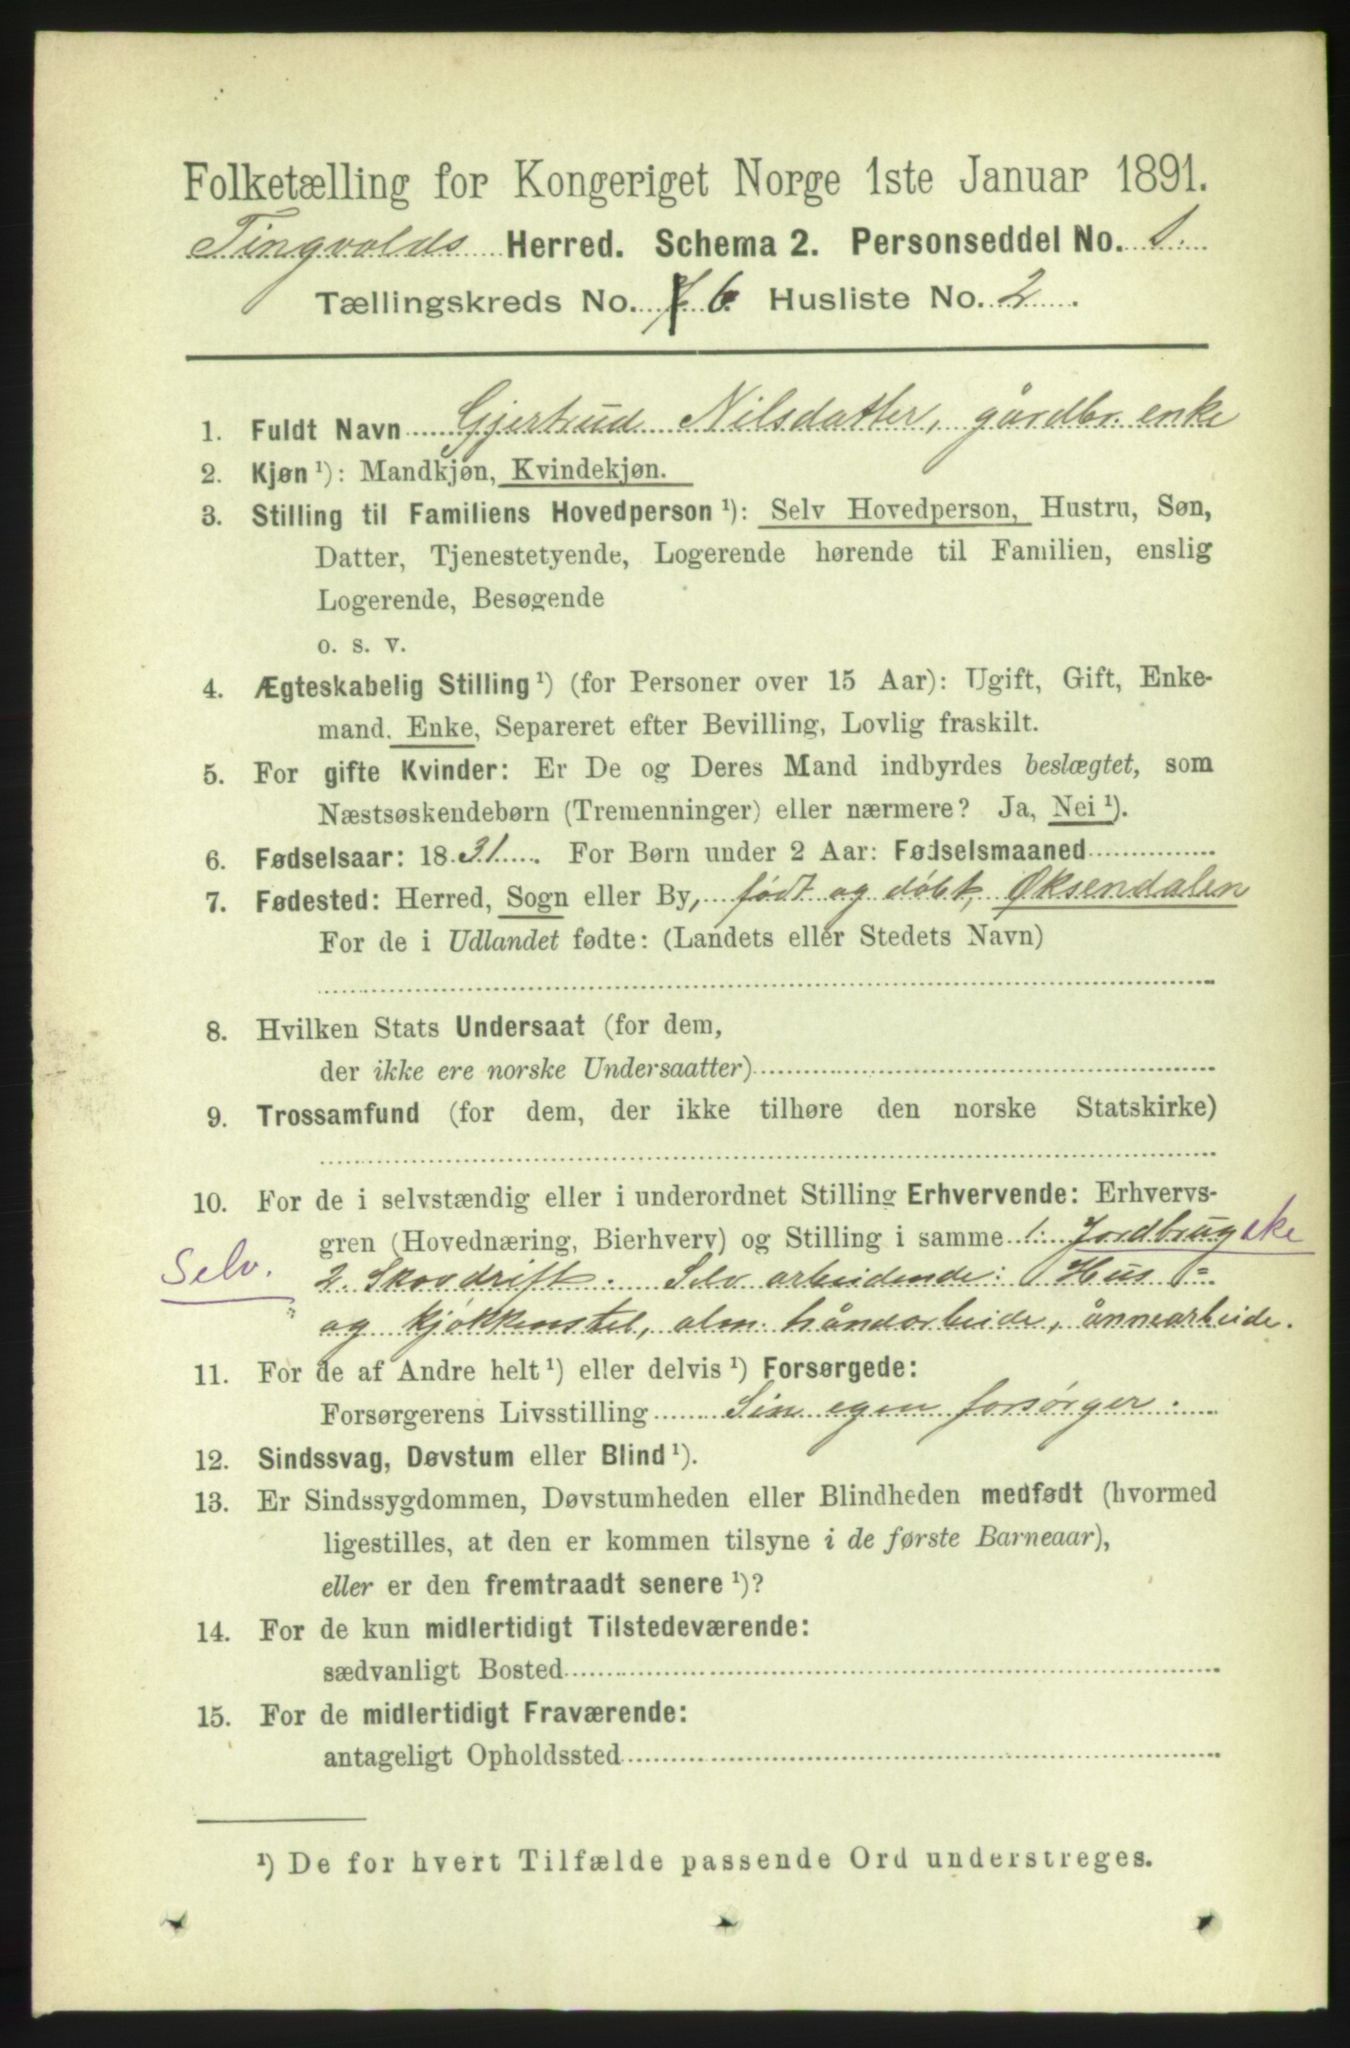 Folketælling for Kongeriget Norge 1ste Januar 1891.
Tingvolds Herred. Schema 2. Personseddel No. 1.
Tællingskreds No. 6. Husliste No. 2.
1. Fuldt Navn Gjertrud Nilsdatter, gårdbr. enke
2. Kjøn ¹): Mandkjøn, Kvindekjøn.
3. Stilling til Familiens Hovedperson ¹): Selv Hovedperson, Hustru, Søn,
Datter, Tjenestetyende, Logerende hørende til Familien, enslig
Logerende, Besøgende
o. s. v.
4. Ægteskabelig Stilling ¹) (for Personer over 15 Aar): Ugift, Gift, Enke-
mand, Enke, Separeret efter Bevilling, Lovlig fraskilt.
5. For gifte Kvinder: Er De og Deres Mand indbyrdes beslægtet, som
Næstsøskendebørn (Tremenninger) eller nærmere? Ja, Nei ¹).
6. Fødselsaar: 1831. For Børn under 2 Aar: Fødselsmaaned
7. Fødested: Herred, Sogn eller By, født og døbt, Øksendalen
For de i Udlandet fødte: (Landets eller Stedets Navn)
8. Hvilken Stats Undersaat (for dem,
der ikke ere norske Undersaatter)
9. Trossamfund (for dem, der ikke tilhøre den norske Statskirke)
10. For de i selvstændig eller i underordnet Stilling Erhvervende: Erhvervs-
gren (Hovednæring, Bierhverv) og Stilling i samme 1. Jordbrug eke
Selv. 2. Skovdrift. Selv arbeidende: Hus =
og kjøkkenstel, alm. håndarbeide, ånnearbeide.
11. For de af Andre helt ¹) eller delvis ¹) Forsørgede:
Forsørgerens Livsstilling Sin egen forsørger.
12. Sindssvag, Døvstum eller Blind ¹).
13. Er Sindssygdommen, Døvstumheden eller Blindheden medfødt (hvormed
ligestilles, at den er kommen tilsyne i de første Barneaar),
eller er den fremtraadt senere ¹)?
14. For de kun midlertidigt Tilstedeværende:
sædvanligt Bosted
15. For de midlertidigt Fraværende:
antageligt Opholdssted
¹) De for hvert Tilfælde passende Ord understreges.